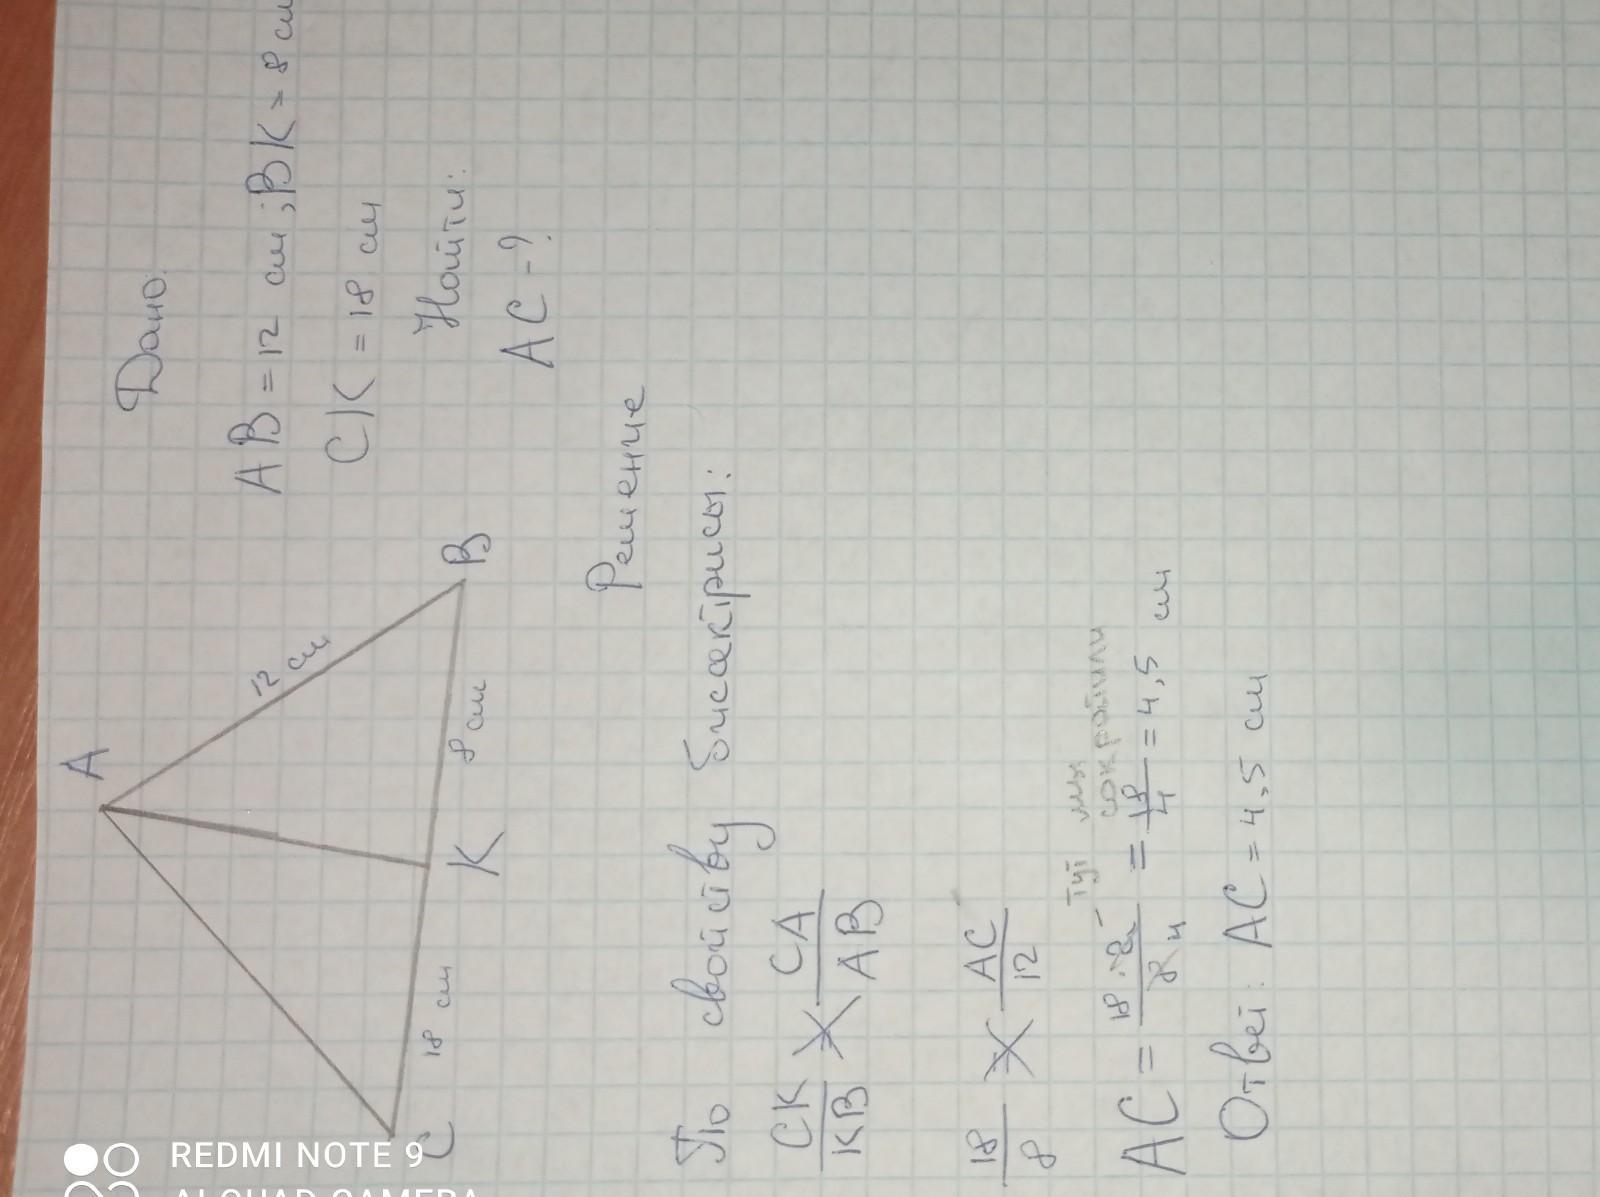 Дано:
AB = 12 см; BK = 8 см
CK = 18 см
Найти:
AC - ?
A
12 см
B
8 см
K
18 см
C
Решение
По свойству биссектрисы:
CK/KB = CA/AB
18/8 = AC/12
тут мы сократили
= 18/4 = 4,5 см
Ответ: AC = 4,5 см
REDMI NOTE 9
AI QUAD CAMERA